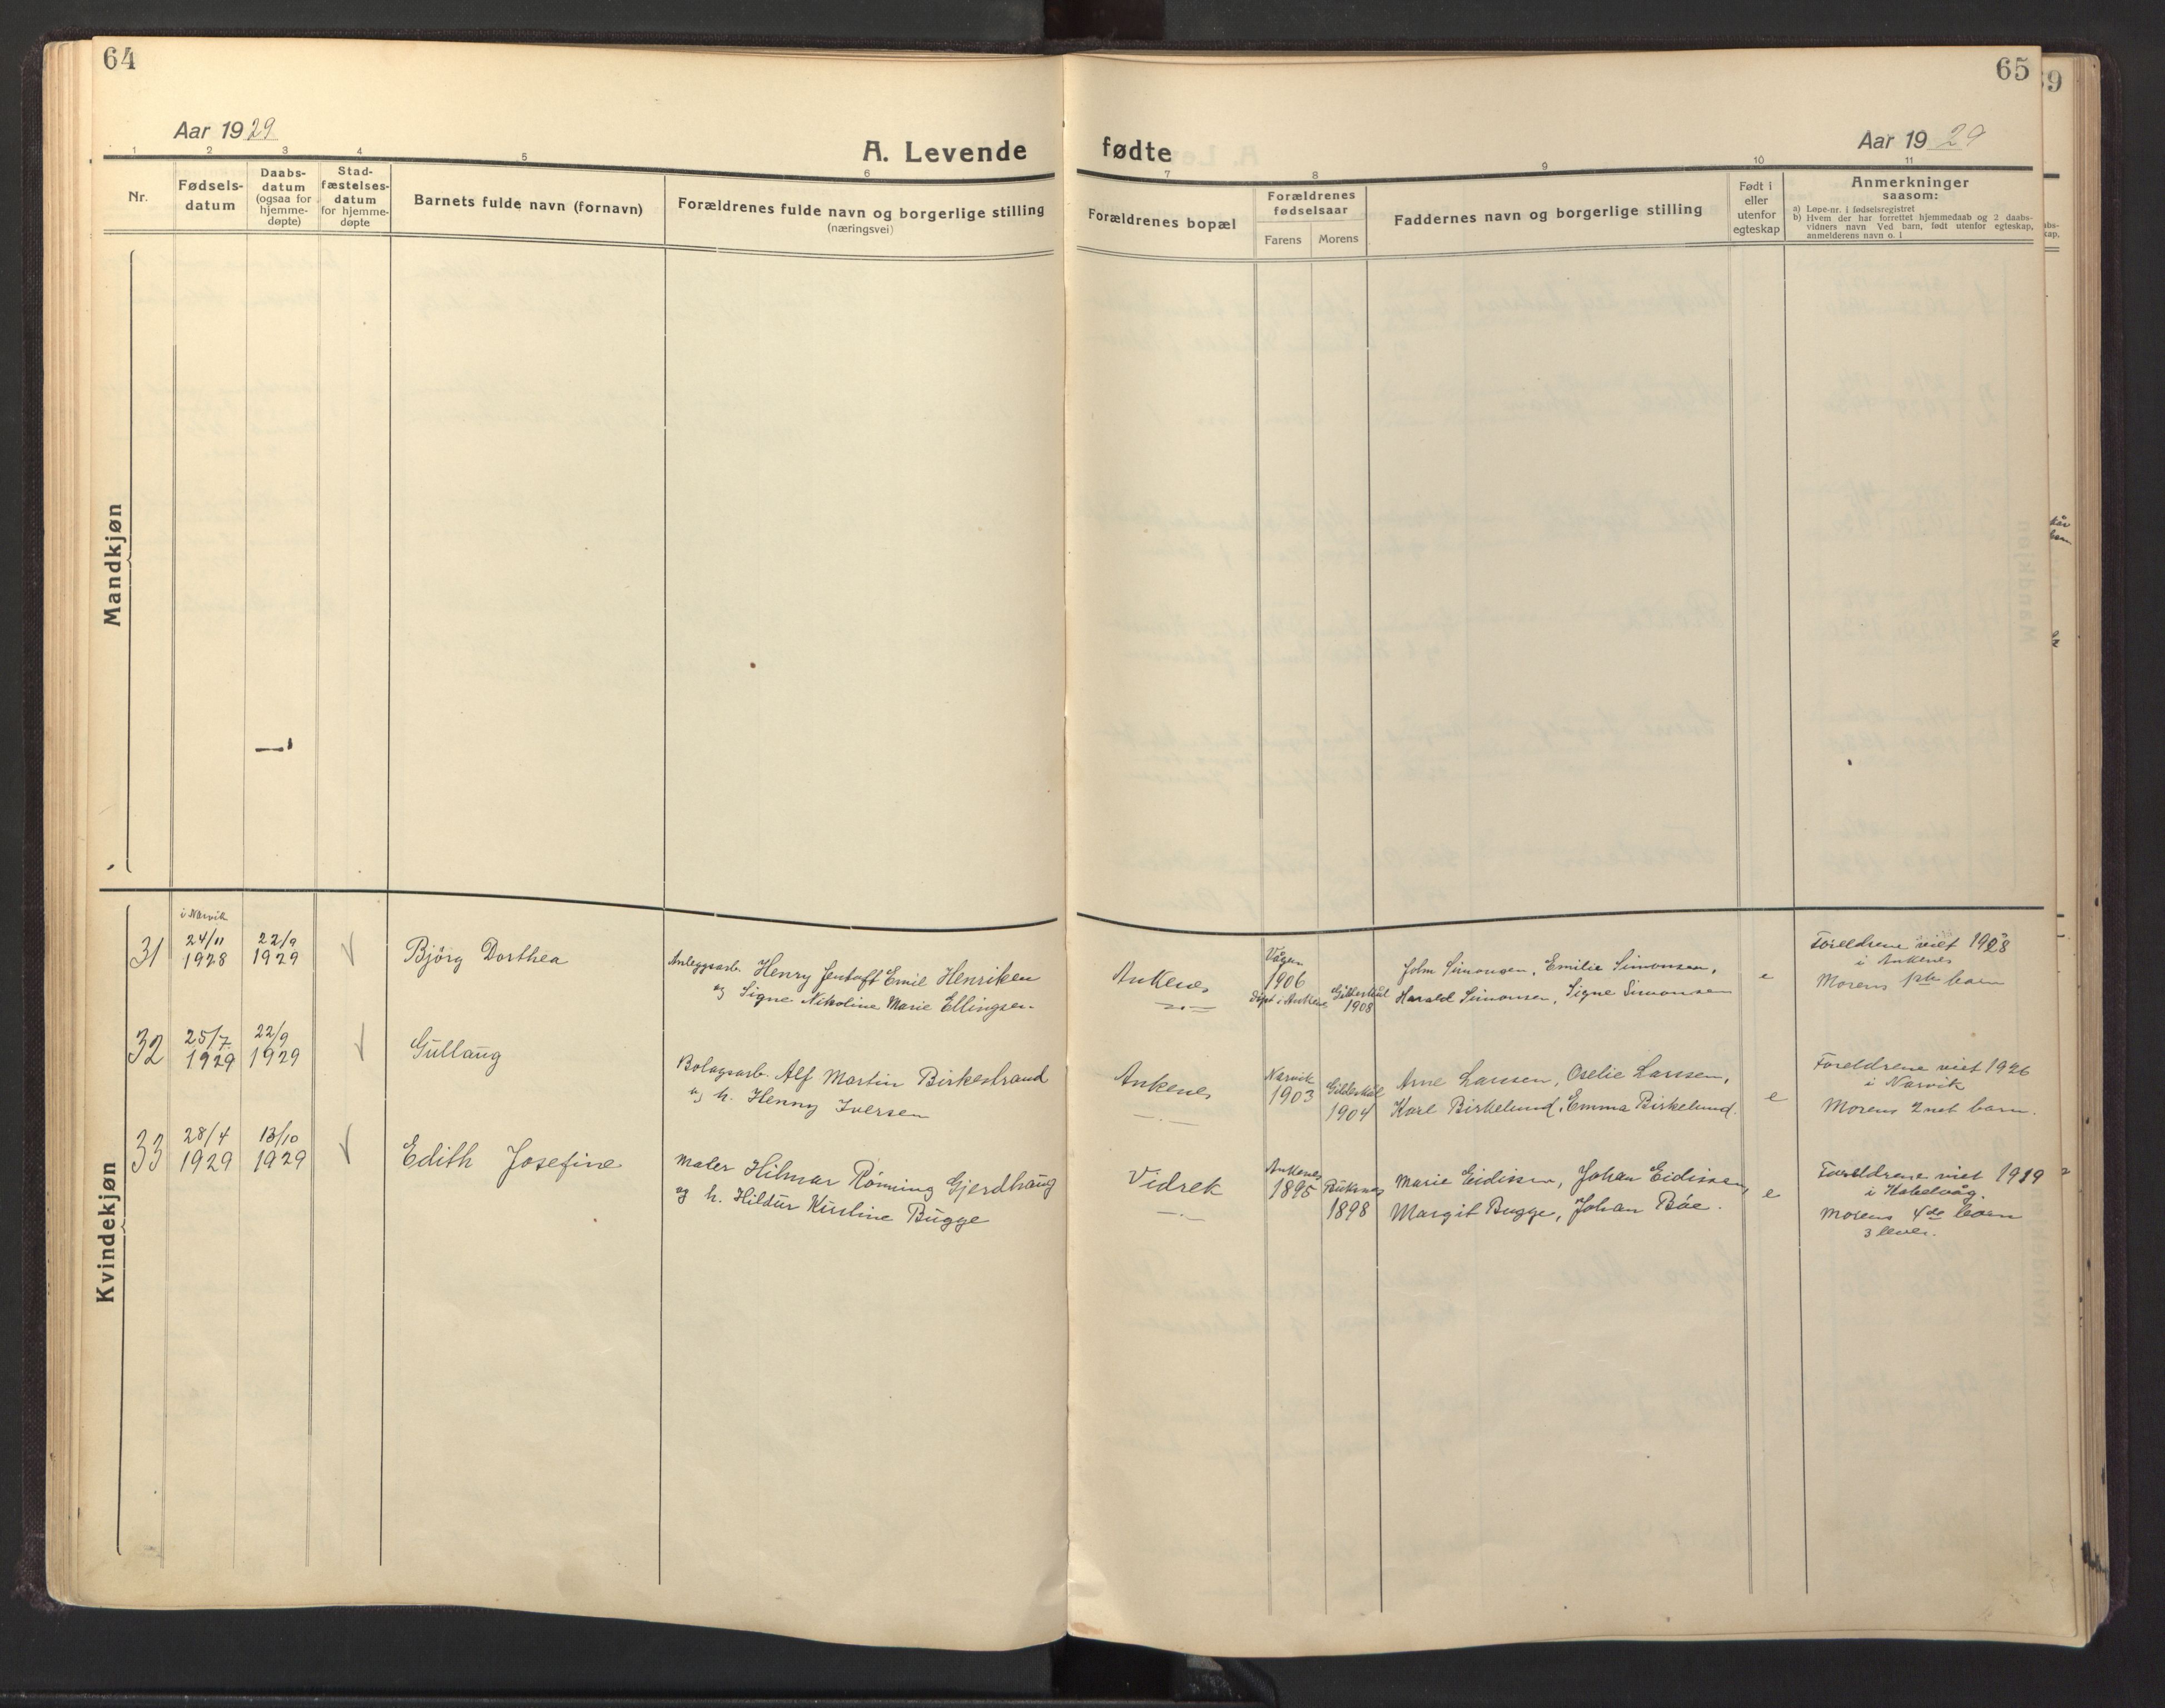 64
Aar 1929
A. Levende
1
2
3
4
5
6
Nr.
Fødsels-
datum
Daabs-
datum
(ogsaa for
hjemme-
døpte)
Stad-
fæstelses-
datum
for hjemme-
døpte
Barnets fulde navn (fornavn)
Forældrenes fulde navn og borgerlige stilling
(næringsvei)
Mandkjøn
Kvindekjøn
i Narvik
31 24/11 1928 22/9 1929 √ Bjørg Dorthea
Anleggsarb. Henry Jentoft Emil Henriken
og Signe Nikoline Marie Ellingsen.
32 25/7 1929 22/9 1929 √ Gullaug
Bolagsarb. Alf Martin Birkestrand
og h. Henny Iversen
33 28/4 1929 13/10 1929 √ Edith Josefine
Maler Hilmar Rönning Gjerdhaug
og h. Hildur Kirstine Bugge
65
Aar 1929
fødte
7
8
9
10
11
Forældrenes bopæl
Forældrenes
fødselsaar
Farens
Morens
Faddernes navn og borgerlige stilling
Født i
eller
utenfor
egteskap
Anmerkninger
saasom:
a) Løpe-nr. i fødselsregistret
b) Hvem der har forrettet hjemmedaab og 2 daabs-
vidners navn Ved barn, født utenfor egteskap,
anmelderens navn o. l
Ankenes
Vågan
1906
døpt i Ankenes
Gildeskål
1908
John Simonsen, Emilie Simonsen,
Harald Simonsen, Signe Simonsen
e
Foreldrene viet 1928
i Ankenes
Morens 1ste barn
Ankenes
Narvik
1903
Gildeskål
1904
Arne Larssen, Oselie Larssen,
Karl Birkelund, Emma Birkelund.
e
Foreldrene viet 1926
i Narvik
Morens 2net barn.
Vidrek
Ankenes
1895
Buksnes
1898
Marie Eidissen, Johan Eidissen,
Margit Bugge, Johan Bóe.
e
Foreldrene viet 1919
i Kabelvåg.
Morens 4de barn
3 lever.